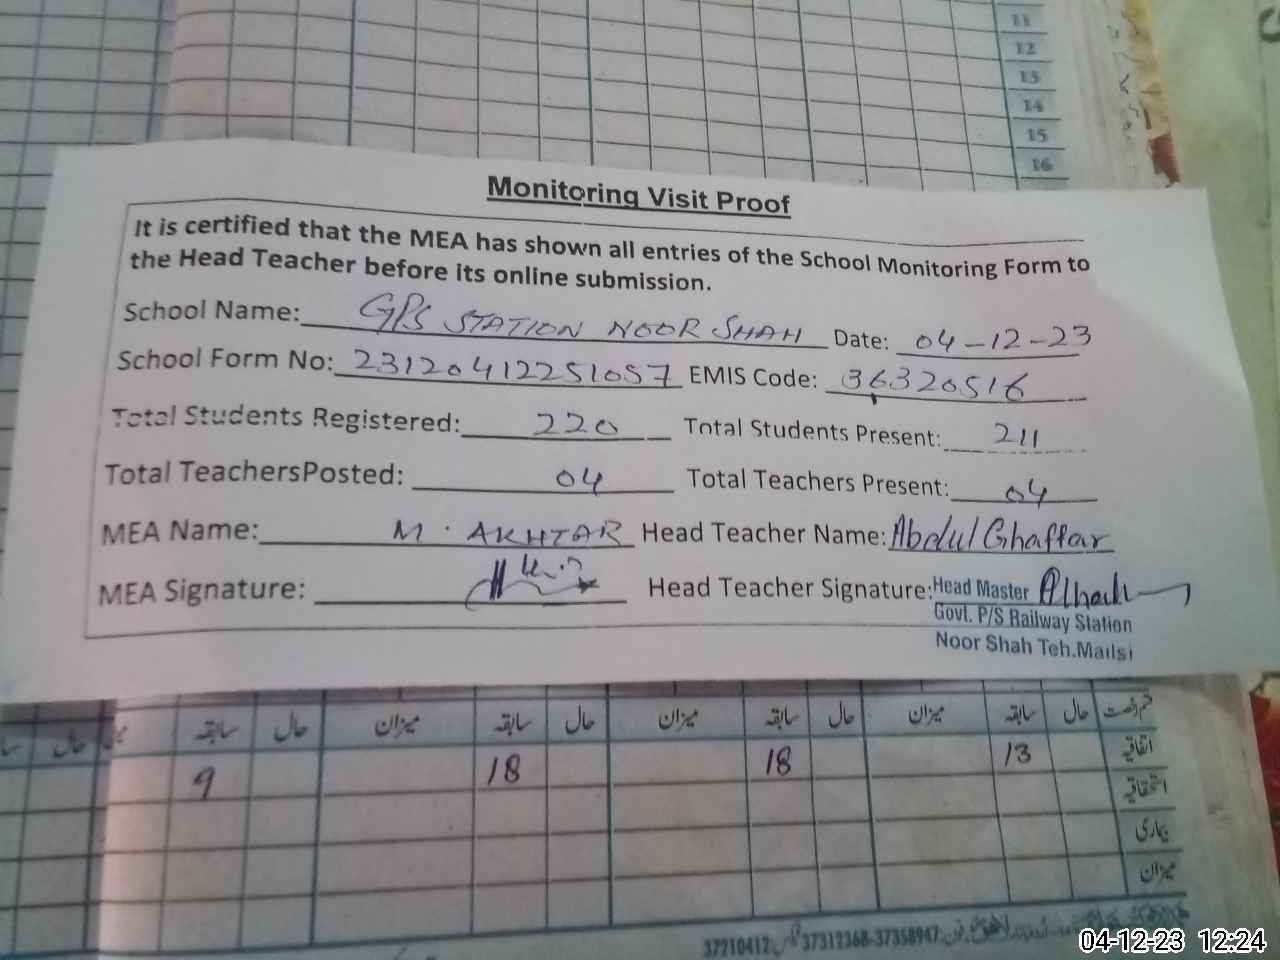 11
12
13
14
15
16
Monitoring Visit Proof
It is certified that the MEA has shown all entries of the School Monitoring Form to
the Head Teacher before its online submission.
School Name: GPS STATION NOOR SHAH Date: 04-12-23
School Form No: 23120412251057 EMIS Code: 36320516
Total Students Registered: 220 Total Students Present: 211
Total TeachersPosted: 04 Total Teachers Present: 04
MEA Name: M. AKHTAR Head Teacher Name: Abdul Ghaffar
MEA Signature: Head Teacher Signature: Head Master
Govt. P/S Railway Station
Noor Shah Teh.Mailsi
قسم رخصت حال سابقہ میزان حال سابقہ میزان حال سابقہ میزان حال سابقہ حال
اتفاقیہ 13 18 18 9
استحقاقیہ
بیماری
میزان
37210412 37312368-37358947
04-12-23 12:24